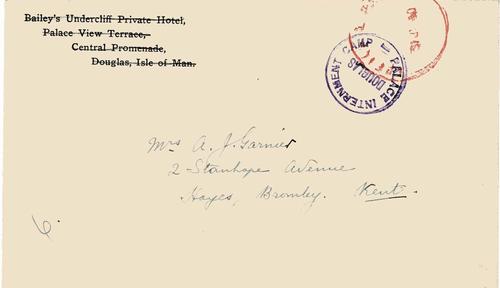 Bailey's Undercliff Private Hotel,
Palace View Terrace,
Central Promenade,
Douglas, Isle of Man.
PALACE INTERNMENT CAMP
DOUGLAS
Mrs A. J. Garnier
2 Stanhope Avenue
Hayes, Bromley. Kent.